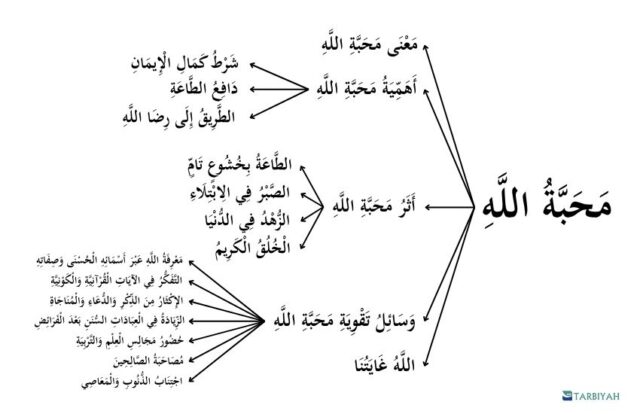 مَحَبَّةُ اللَّهِ
مَعْنَى مَحَبَّةِ اللَّهِ
أَهَمِّيَةُ مَحَبَّةِ اللَّهِ
شَرْطُ كَمَالِ الْإِيمَانِ
دَافِعُ الطَّاعَةِ
الطَّرِيقُ إِلَى رِضَا اللَّهِ
أَثَرُ مَحَبَّةِ اللَّهِ
الطَّاعَةُ بِخُشُوعٍ تَامٍّ
الصَّبْرُ فِي الِابْتِلَاءِ
الزُّهْدُ فِي الدُّنْيَا
الْخُلُقُ الْكَرِيمُ
وَسَائِلُ تَقْوِيَةِ مَحَبَّةِ اللَّهِ
مَعْرِفَةُ اللَّهِ عَبْرَ أَسْمَائِهِ الْحُسْنَى وَصِفَاتِهِ
التَّفَكُّرُ فِي الْآيَاتِ الْقُرْآنِيَّةِ وَالْكَوْنِيَّةِ
الْإِكْثَارُ مِنَ الذِّكْرِ وَالدُّعَاءِ وَالْمُنَاجَاةِ
الزِّيَادَةُ فِي الْعِبَادَاتِ السُّنَنِ بَعْدَ الْفَرَائِضِ
حُضُورُ مَجَالِسِ الْعِلْمِ وَالتَّرْبِيَةِ
مُصَاحَبَةُ الصَّالِحِينَ
اجْتِنَابُ الذُّنُوبِ وَالْمَعَاصِي
اللَّهُ غَايَتُنَا
TARBIYAH